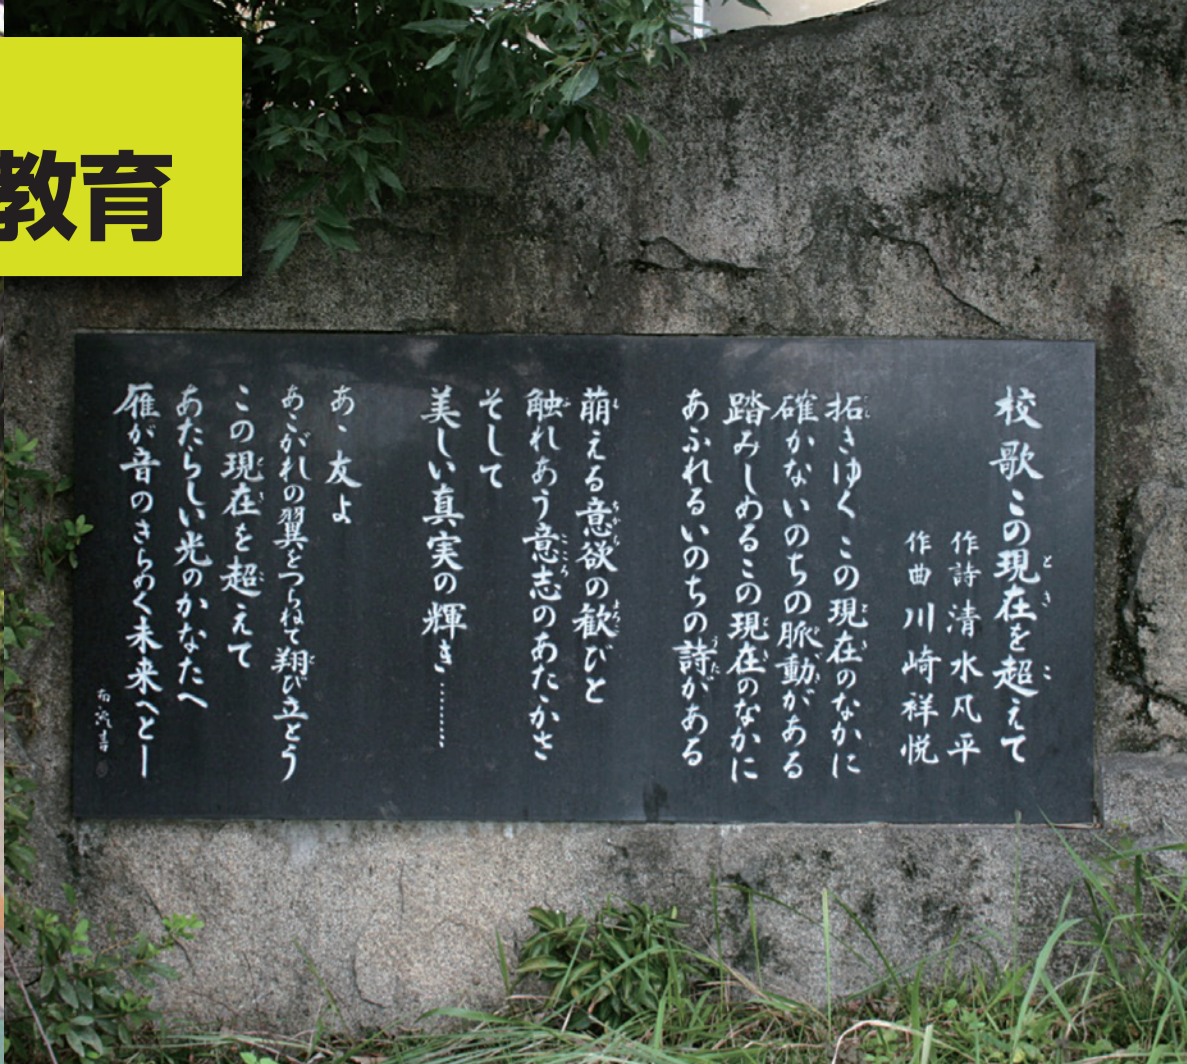 教育
校歌 この現在を超えて
作詩 清水凡平
作曲 川崎祥悦
拓きゆく この現在のなかに
確かないのちの脈動がある
踏みしめるこの現在のなかに
あふれるいのちの詩がある
萠える意欲の歓びと
触れあう意志のあたたかさ
そして
美しい真実の輝き………
あゝ友よ
あこがれの翼をつらねて翔び立とう
この現在を超えて
あたらしい光のかなたへ
雁が音のきらめく未来へとー